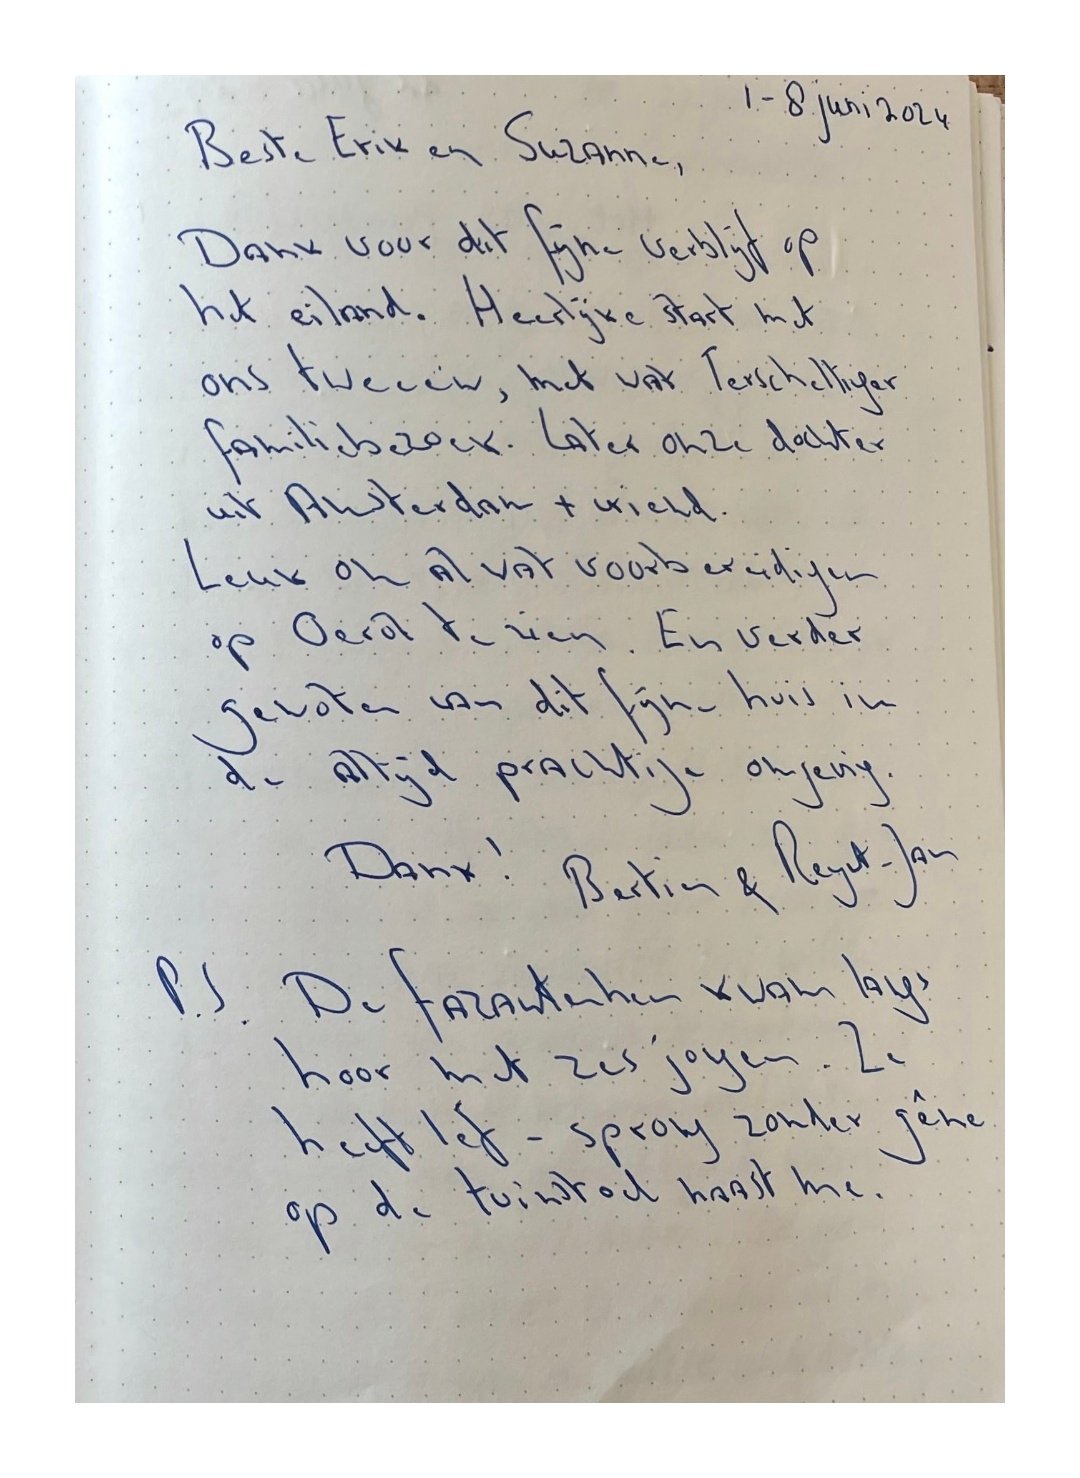 1-8 juni 2024
Beste Erik en Suzanne,
Dank voor dit fijne verblijf op
het eiland. Heerlijke start met
ons tweeën, met wat Terschellinger
familiebezoek. Later onze dochter
uit Amsterdam + vriend.
Leuk om al wat voorbereidigen
op Oerol te zien. En verder
genoten van dit fijne huis in
de altijd prachtige omgeving.
Dank! Bertien & -Jan
P.S. De fazantenhen kwam langs
hoor met zes jongen. Ze
heeft lef - sprong zonder gêne
op de tuinstoel naast me.